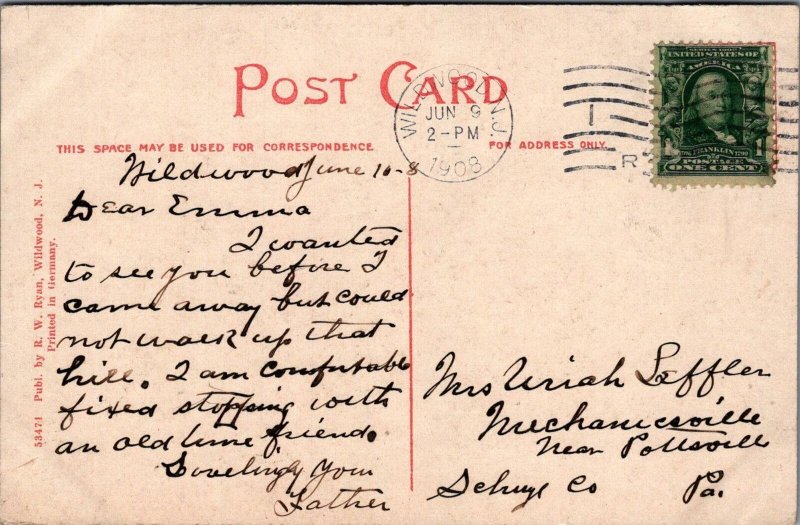 POST CARD
THIS SPACE MAY BE USED FOR CORRESPONDENCE
FOR ADDRESS ONLY.
WILDWOOD, N.J.
JUN 9
2-PM
1908
1
R
SERIES 1902
UNITED STATES OF
AMERICA
FRANKLIN
1 1
POSTAGE
ONE CENT
53471 Publ. by R. W. Ryan, Wildwood, N. J.
Printed in Germany.
Wildwood June 10-8
Dear Emma
I wanted
to see you before I
came away but could
not walk up that
hill. I am comfortable
fixed stopping with
an old time friend.
Lovelingly your
Father
Mrs Uriah Leffler
Mechanicsville
Near Pottsville
Schuyl Co Pa.